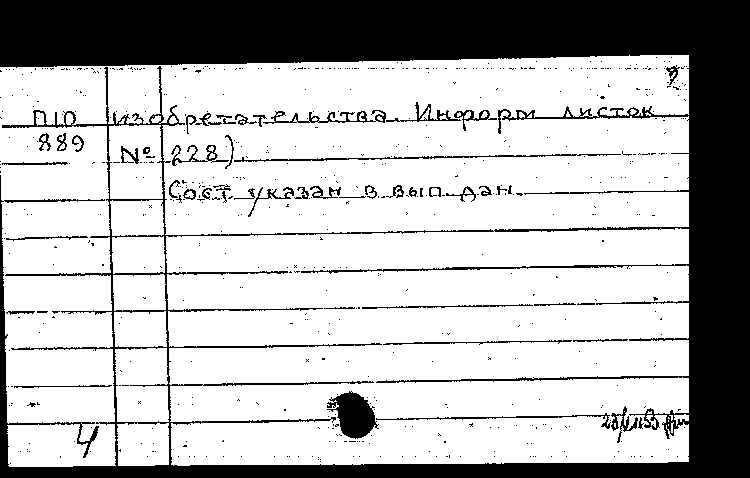 П10 изобретательства. Информ листок
889 № 228).
Сост. указан в вып. дан.
4